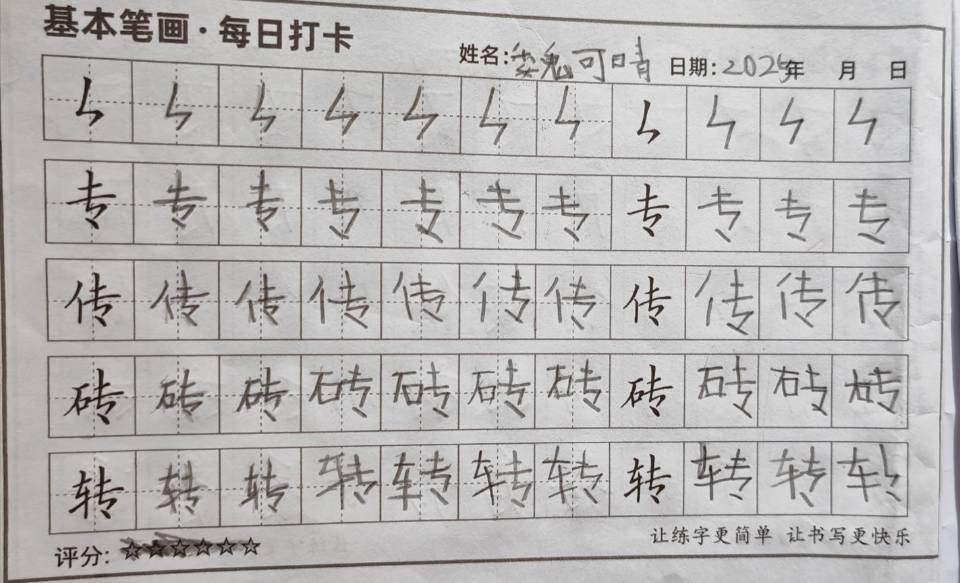 基本笔画·每日打卡
姓名:娄魏可晴 日期:2025年 月 日
ㄣ ㄣ ㄣ ㄣ ㄣ ㄣ ㄣ ㄣ ㄣ ㄣ ㄣ
专 专 专 专 专 专 专 专 专 专 专
传 传 传 传 传 传 传 传 传 传 传
砖 砖 砖 砖 砖 砖 砖 砖 砖 砖 砖
转 转 转 转 转 转 转 转 转 转 转
评分:☆☆☆☆☆☆ 让练字更简单 让书写更快乐